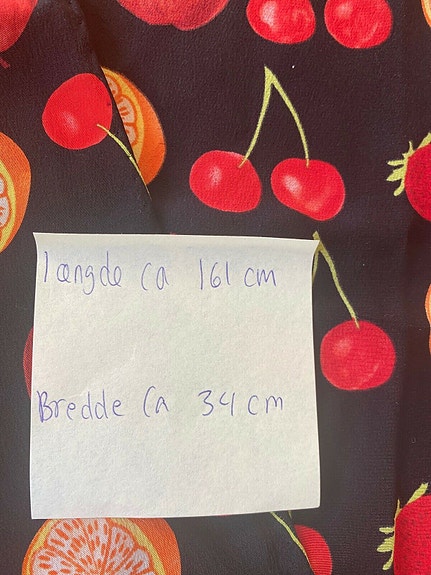 længde ca 161 cm
Bredde Ca 34 cm